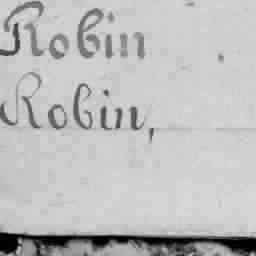 Robin
Robin,